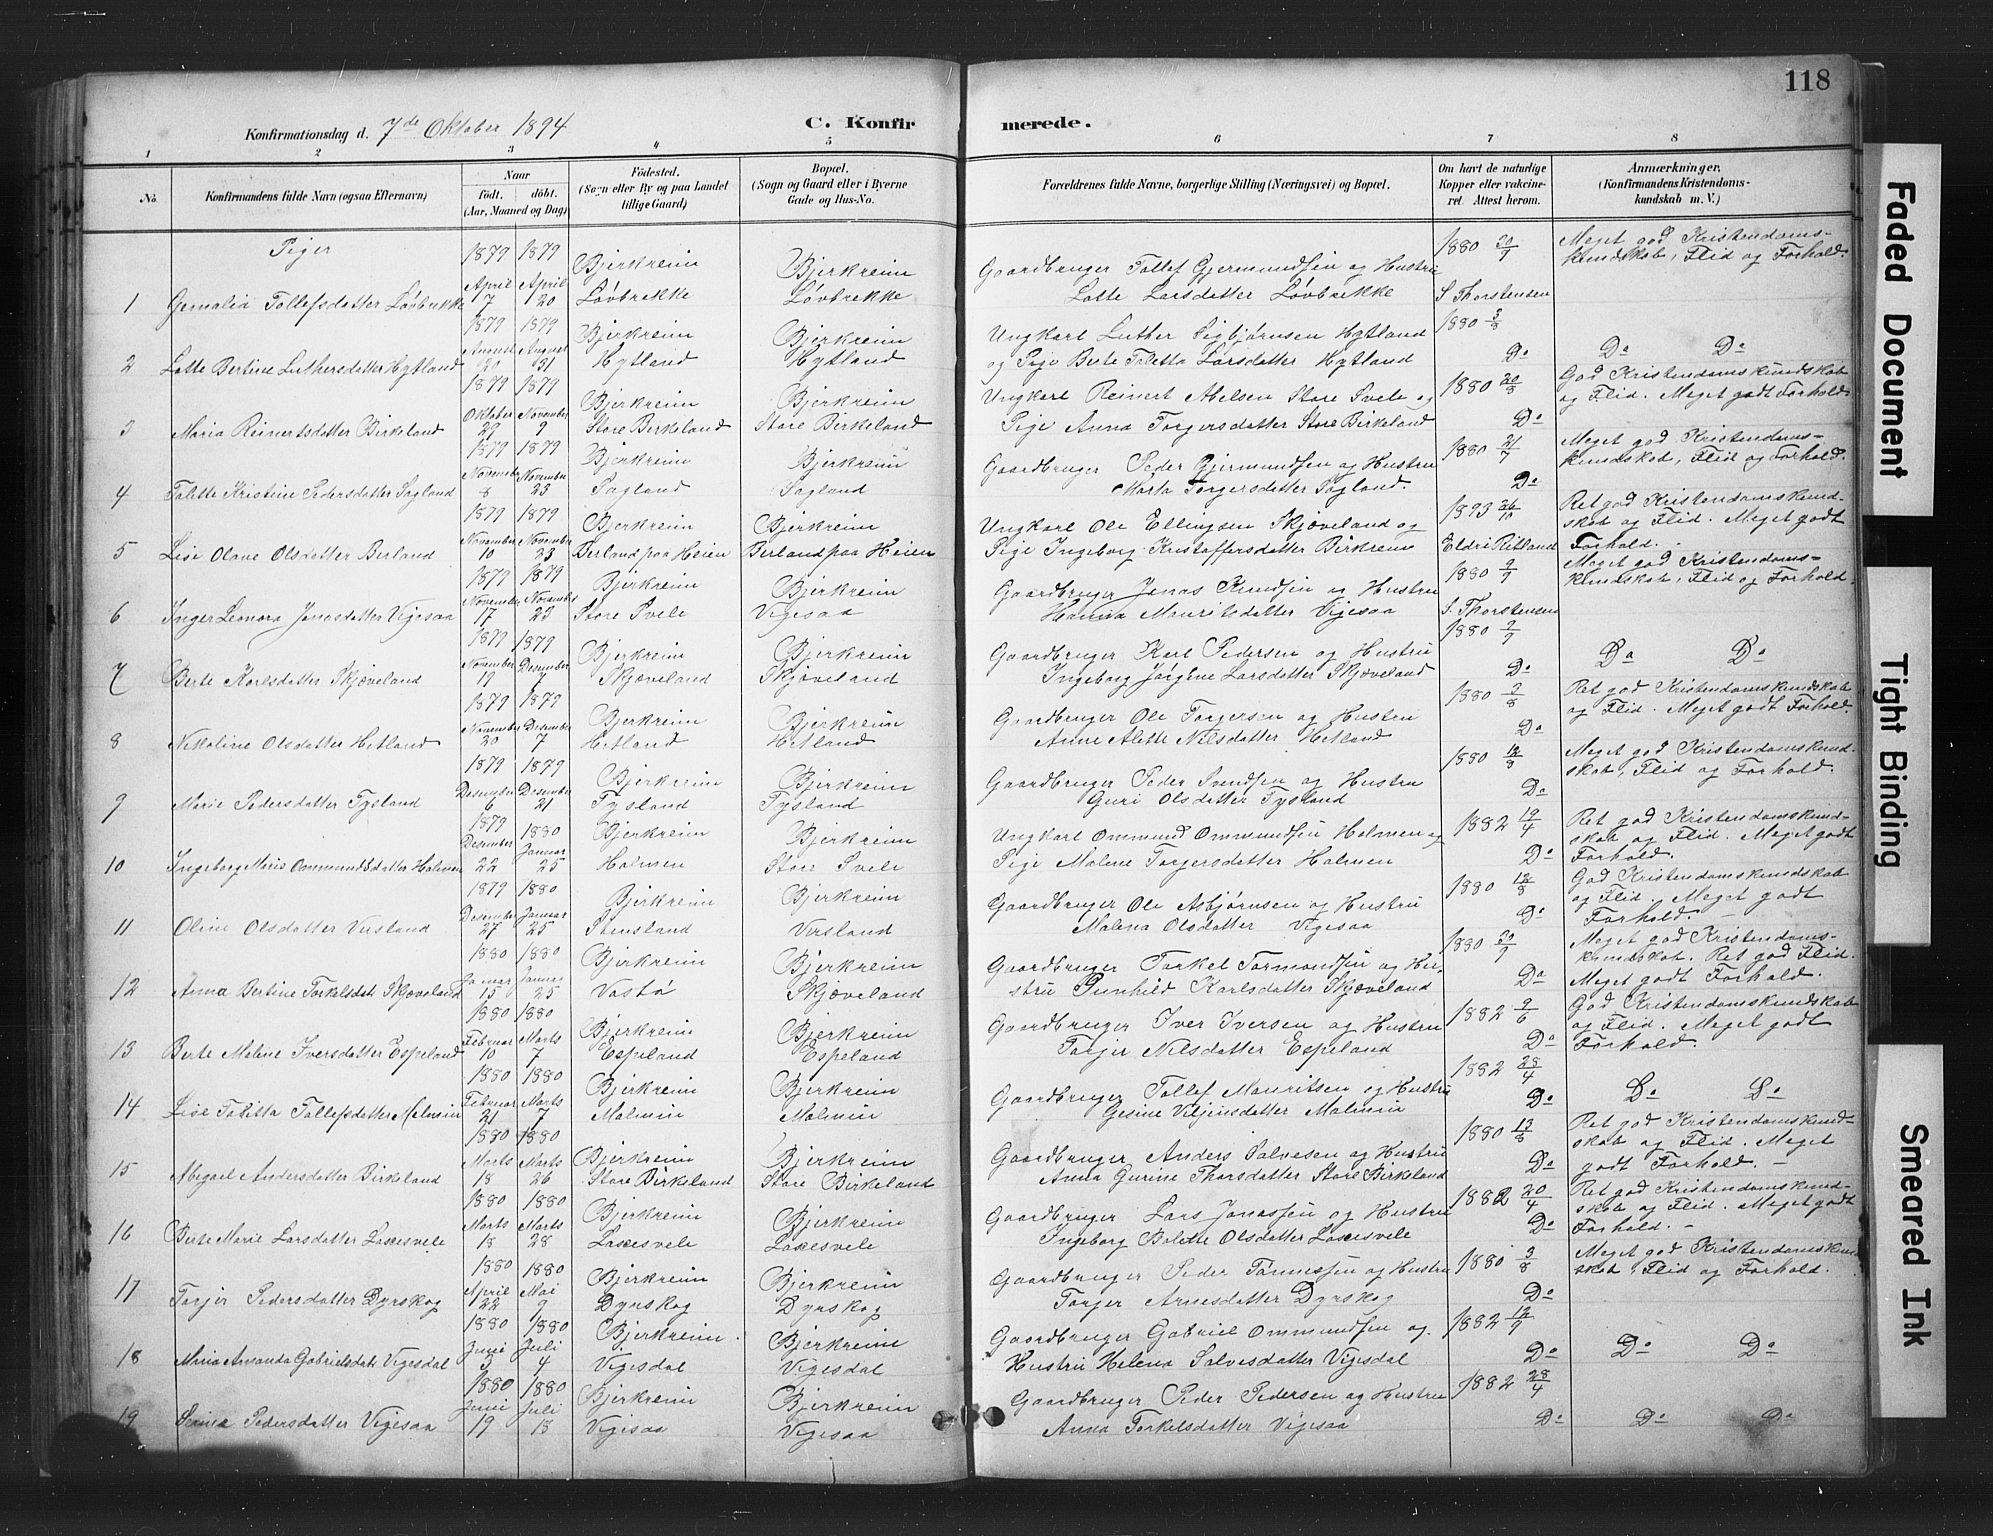 118
Konfirmationsdag d. 7de Oktober 1894
C. Konfirmerede.
1 2 3 4 5 6 7 8
No.
Konfirmandens fulde Navn (ogsaa Efternavn)
Naar
Födt. döbt.
(Aar, Maaned og Dag)
Födested.
(Sogn eller By og paa Landet
tillige Gaard)
Bopæl.
(Sogn og Gaard eller i Byerne
Gade og Hus-No.
Forældrenes fulde Navne, borgerlige Stilling (Næringsvei) og Bopæl.
Om havt de naturlige
Kopper eller vakcine-
ret. Attest herom.
Anmærkninger.
(Konfirmandens Kristendoms-
kundskab m. V.)
Piger
1 Gemalia Tollefsdatter Løvbrekke
1879 April 7
1879 April 20
Bjerkreim Løvbrekke
Bjerkreim Løvbrekke
Gaardbruger Tollef Gjermundsen og Hustru
Lotte Larsdatter Løvbrekke
1880 30/7
S Thorstensen
Meget god Kristendoms-
kundskab, Flid og Forhold.
2 Lotte Bertine Luthersdatter Hytland
1879 August 20
1879 August 31
Bjerkreim Hytland
Bjerkreim Hytland
Ungkarl Luther Sigbjørnsen Hytland
og Pige Berte Taletta Larsdatter Hytland
1880 3/8
Do
Do Do
3 Maria Reinertsdatter Birkeland
1879 Oktober 29
1879 November 9
Bjerkreim Store Birkeland
Bjerkreim Store Birkeland
Ungkarl Reinert Abelsen Store Svele og
Pige Anna Torgersdatter Store Birkeland
1880 20/8
Do
God Kristendomskundskab
og Flid. Meget godt Forhold
4 Talette Kristine Pedersdatter Sagland
1879 November 8
1879 November 23
Bjerkreim Sagland
Bjerkreim Sagland
Gaardbruger Peder Gjermundsen og Hustru
Marta Torgersdatter Sagland.
1880 21/7
Do
Meget god Kristendoms-
kundskab, Flid og Forhold.
5 Lise Olave Olsdatter Berland
1879 November 10
1879 November 23
Bjerkreim Berland paa Heien
Bjerkreim Berland paa Heien
Ungkarl Ole Ellingsen Skjæveland og
Pige Ingeborg Kristoffersdatter Birkrem
1893 26/10
Eldri Ritland
Ret god Kristendomskund-
skab og Flid. Meget godt
Forhold. -
6 Inger Leonora Jonasdatter Vigesaa
1879 November 17
1879 November 23
Bjerkreim Store Svele
Bjerkreim Vigesaa
Gaardbruger Jonas Knudsen og Hustru
Hanna Mauritsdatter Vigesaa
1880 9/7
S. Thorstensen
Meget god Kristendoms-
kundskab, Flid og Forhold.
7 Berte Karlsdatter Skjæveland
1879 November 19
1879 Desember 7
Bjerkreim Skjæveland
Bjerkreim Skjæveland
Gaardbruger Karl Pedersen og Hustru
Ingeborg Jørgine Larsdatter Skjæveland
1880 9/7
Do
Do Do
8 Nikoline Olsdatter Hetland
1879 November 20
1879 Desember 7
Bjerkreim Hetland
Bjerkreim Hetland
Gaardbruger Ole Torgersen og Hustru
Anne Alette Nilsdatter Hetland
1880 9/8
Do
Ret god Kristendomskundskab
og Flid. Meget godt Forhold.
9 Marie Pedersdatter Tysland
1879 Desember 6
1879 Desember 21
Bjerkreim Tysland
Bjerkreim Tysland
Gaardbruger Peder Svendsen og Hustru
Guri Olsdatter Tysland
1880 12/8
Do
Meget god Kristendomskund-
skab, Flid og Forhold.
10 Ingeborg Marie Ommundsdatter Holmen
1879 Desember 22
1880 Januar 25
Bjerkreim Holmen
Bjerkreim Store Svele
Ungkarl Ommund Ommundsen Holmen og
Pige Malene Torgersdatter Holmen
1882 19/4
Do
Ret god Kristendomskund-
skab og Flid. Meget godt
Forhold.
11 Oline Olsdatter Versland
1879 Desember 27
1880 Januar 25
Bjerkreim Stensland
Bjerkreim Versland
Gaardbruger Ole Asbjørnsen og Hustru
Malena Olsdatter Vigesaa
1880 12/8
Do
God Kristendomskundskab
og Flid. Meget godt
Forhold. -
12 Anna Bertine Torkelsdat. Skjæveland
1880 Januar 15
1880 Januar 25
Bjerkreim Vastø
Bjerkreim Skjæveland
Gaardbruger Torkel Tormodsen og Hu-
stru Gunhild Karlsdatter Skjæveland
1880 30/7
Do
Meget god Kristendoms-
kundskab. Ret god Flid.
Meget godt Forhold.
13 Berte Malene Iversdatter Espeland
1880 Februar 10
1880 Marts 7
Bjerkreim Espeland
Bjerkreim Espeland
Gaardbruger Iver Iversen og Hustru
Torjer Nilsdatter Espeland
1882 9/6
Do
God Kristendomskundskab
og Flid. Meget godt
Forhold.
14 Lise Talitta Tollefsdatter Malmin
1880 Februar 21
1880 Marts 7
Bjerkreim Malmin
Bjerkreim Malmin
Gaardbruger Tollef Mauritsen og Hustru
Gesine Viljensdatter Malmin
1882 28/4
Do
Do Do
15 Abigael Andersdatter Birkeland
1880 Marts 18
1880 Marts 26
Bjerkreim Store Birkeland
Bjerkreim Store Birkeland
Gaardbruger Anders Salvesen og Hustru
Anna Gurine Thorsdatter Store Birkeland
1880 13/8
Do
Ret god Kristendomskund-
skab og Flid. Meget
godt Forhold. -
16 Berte Marie Larsdatter Laxesvele
1880 Marts 18
1880 Marts 28
Bjerkreim Laxesvele
Bjerkreim Laxesvele
Gaardbruger Lars Jonassen og Hustru
Ingeborg Bolette Olsdatter Laxesvele
1882 20/4
Do
Ret god Kristendomskund-
skab og Flid. Meget godt
Forhold. -
17 Torjer Pedersdatter Dyrskog
1880 April 22
1880 Mai 9
Bjerkreim Dyrskog
Bjerkreim Dyrskog
Gaardbruger Peder Tønnessen og Hustru
Torjer Arnesdatter Dyrskog
1880 3/8
Do
Meget god Kristendomskund-
skab, Flid og Forhold.
18 Maria Amanda Gabrielsdat. Vigesdal
1880 Juni 5
1880 Juli 4
Bjerkreim Vigesdal
Bjerkreim Vigesdal
Gaardbruger Gabriel Ommundsen og
Hustru Helena Salvesdatter Vigesdal
1882 12/9
Do
Do Do
19 Pedersdatter Vigesaa
1880 Juni 19
1880 Juli 18
Bjerkreim Vigesaa
Bjerkreim Vigesaa
Gaardbruger Peder Pedersen og Hustru
Anna Torkelsdatter Vigesaa
1882 28/4
Do
Do Do
Faded Document
Tight Binding
Smeared Ink